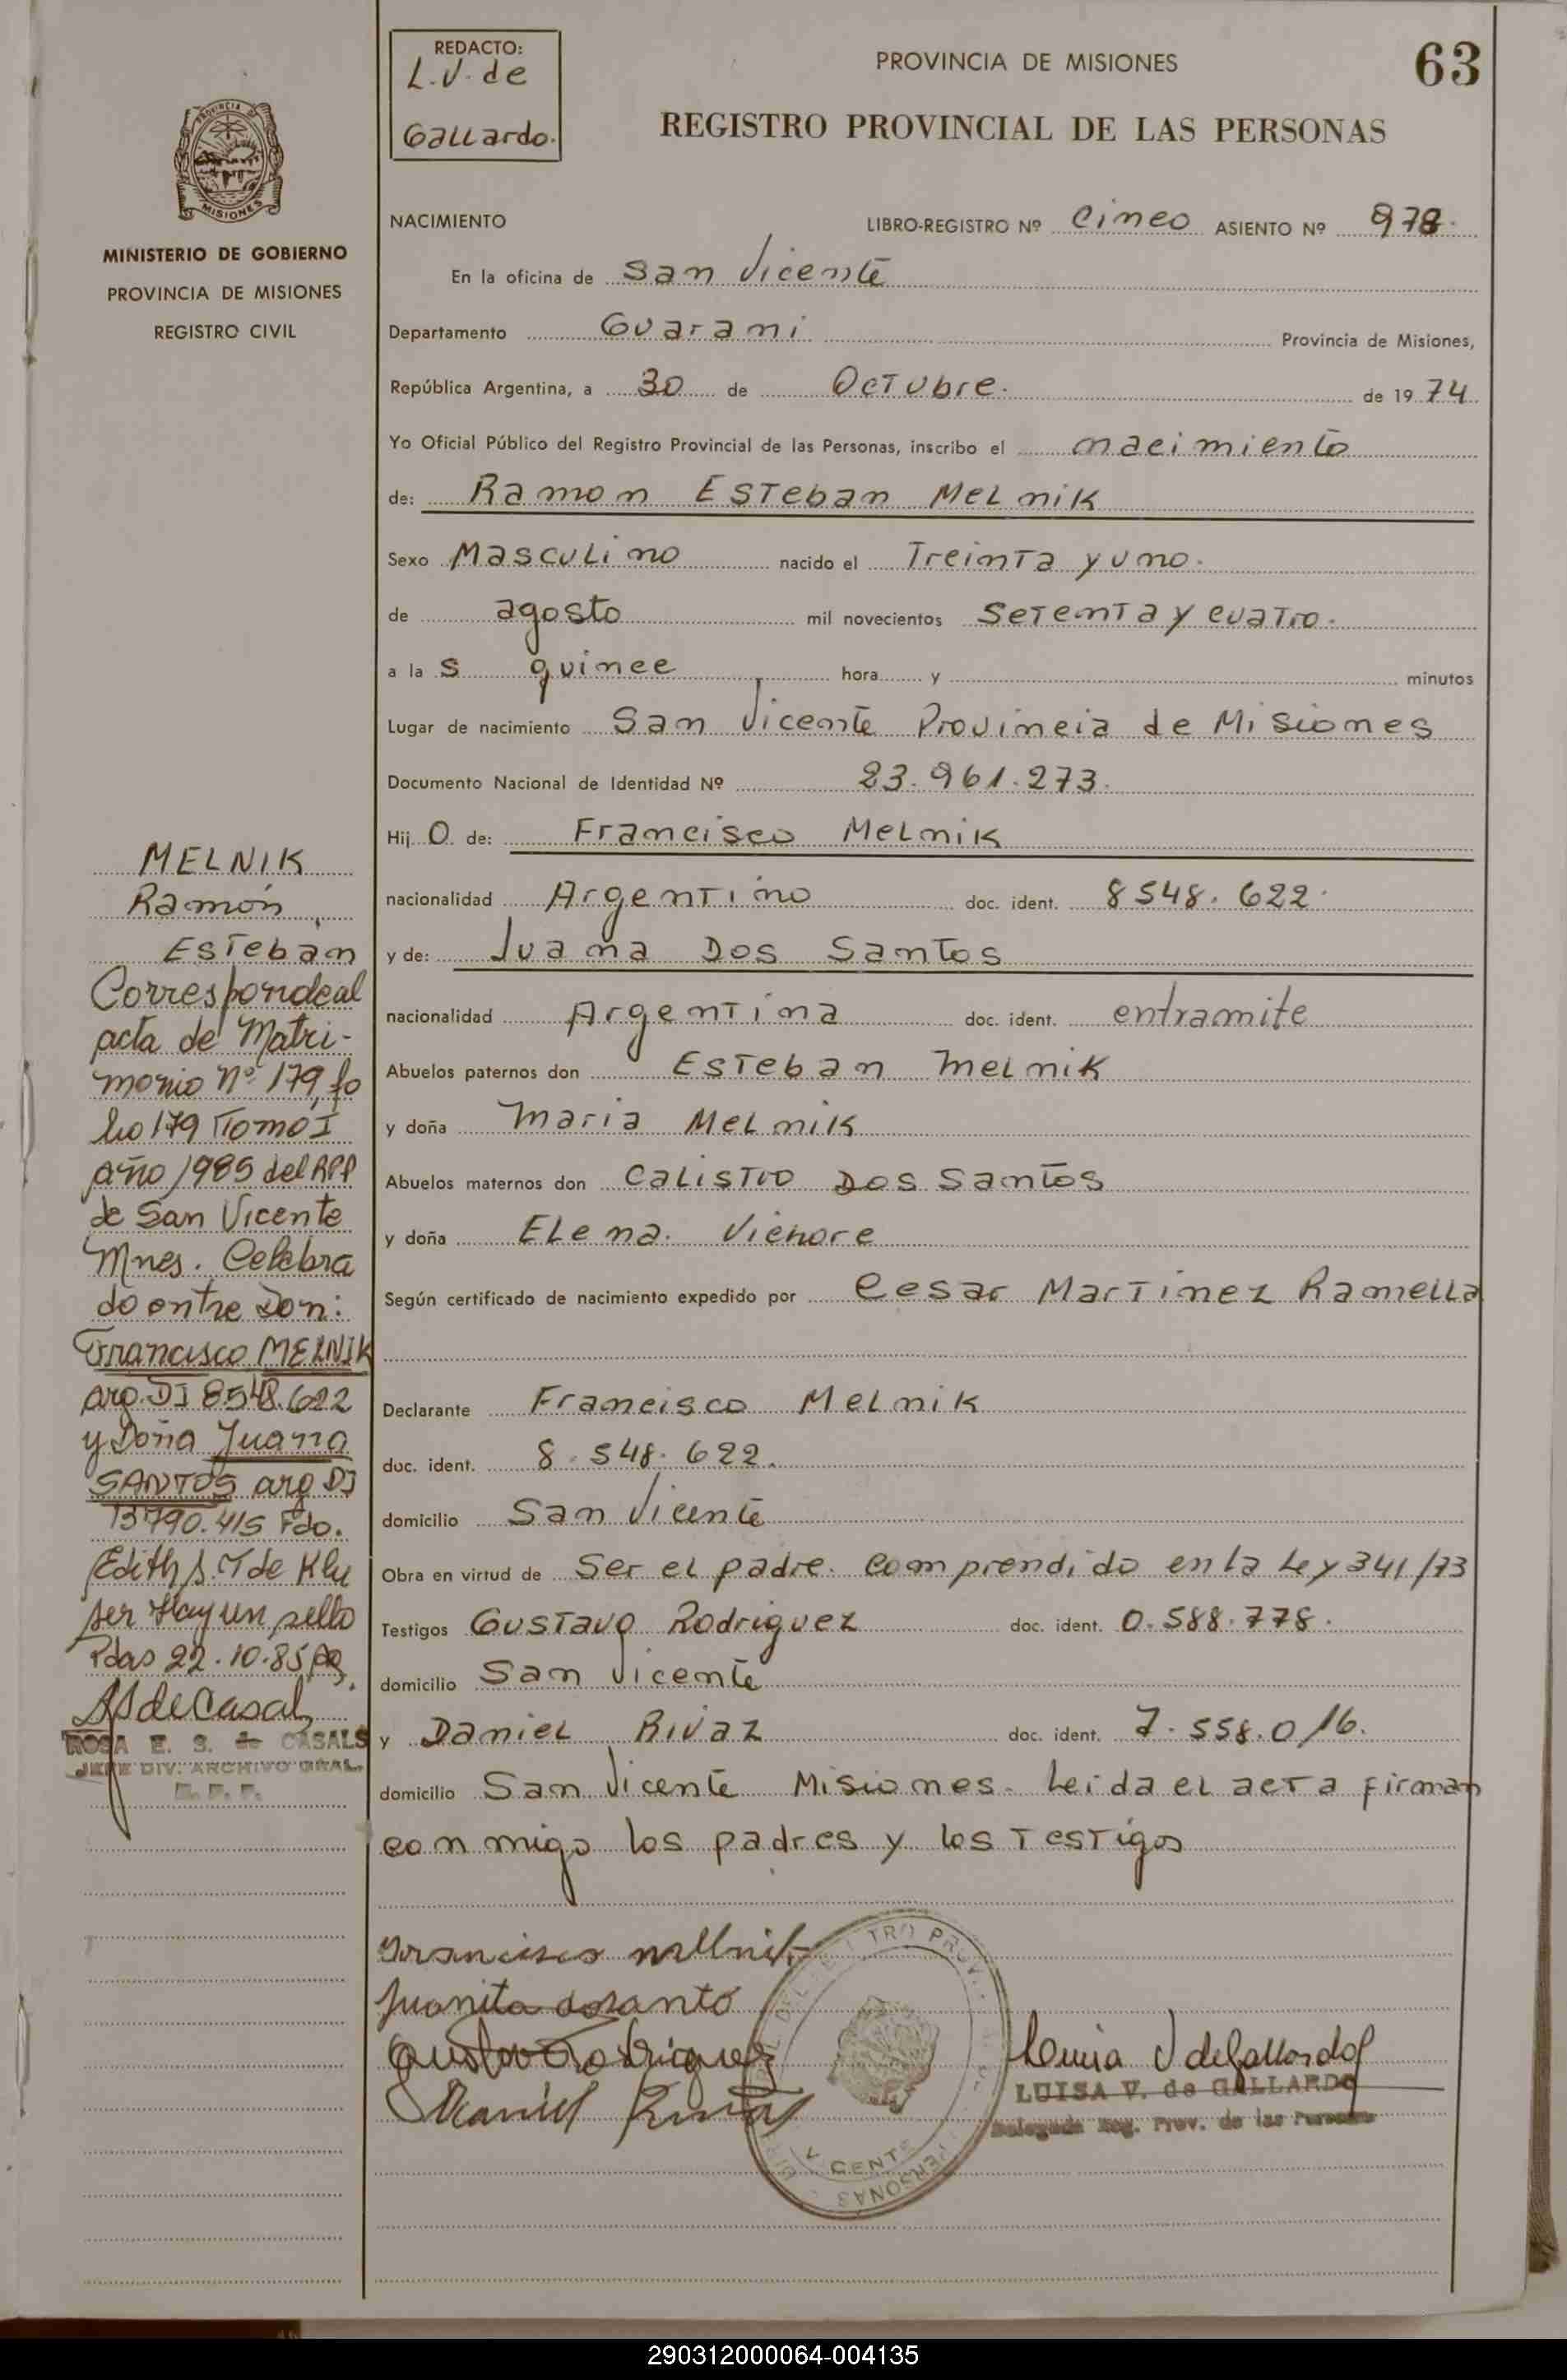 REDACTO:
L.V. de
Gallardo.
PROVINCIA DE MISIONES
63
REGISTRO PROVINCIAL DE LAS PERSONAS
PROVINCIA
MISIONES
MINISTERIO DE GOBIERNO
PROVINCIA DE MISIONES
REGISTRO CIVIL
NACIMIENTO LIBRO-REGISTRO Nº cinco ASIENTO Nº 978.
En la oficina de San Vicente
Departamento Guarani Provincia de Misiones,
República Argentina, a 30 de Octubre. de 1974
Yo Oficial Público del Registro Provincial de las Personas, inscribo el nacimiento
de: Ramon Esteban Melnik
Sexo Masculino nacido el Treinta y uno.
de agosto mil novecientos Setenta y cuatro.
a la s quince hora y minutos
Lugar de nacimiento San Vicente Provincia de Misiones
Documento Nacional de Identidad Nº 23.961.273.
Hij O de: Francisco Melnik
nacionalidad Argentino doc. ident. 8548.622.
y de: Juana Dos Santos
nacionalidad Argentina doc. ident. entramite
Abuelos paternos don Esteban Melnik
y doña Maria Melnik
Abuelos maternos don Calistro Dos Santos
y doña Elena.
Según certificado de nacimiento expedido por Cesar Martinez Ramella
Declarante Francisco Melnik
doc. ident. 8.548.622.
domicilio San Vicente
Obra en virtud de Ser el padre. comprendido en la Ley 341/73
Testigos Gustavo Rodriguez doc. ident. 0.588.778.
domicilio San Vicente
y Daniel Rivaz doc. ident. 7.558.016.
domicilio San Vicente Misiones. Leida el acta firman
conmigo los padres y los Testigos
MELNIK
Ramón
Esteban
Corresponde al
acta de Matri-
monio Nº 179, fo
lio 179 Tomo I
año 1985 del RPP
de San Vicente
Mnes. Celebra
do entre Don:
Francisco MELNIK
arg. DI 8548.622
y Doña Juana
SANTOS arg DI
13790.415 Fdo.
Edith S. T de Klu
ser Hay un sello
Pdas 22.10.85
ASdeCasals
ROSA E. S. de CASALS
JEFE DIV. ARCHIVO GRAL.
R. P. P.
Francisco Mellnik
Juanita dosanto
Gustavo Rodriguez
Daniel Rivaz
Luisa V de Gallardo
LUISA V. de GALLARDO
Delegada Reg. Prov. de las Personas
290312000064-004135